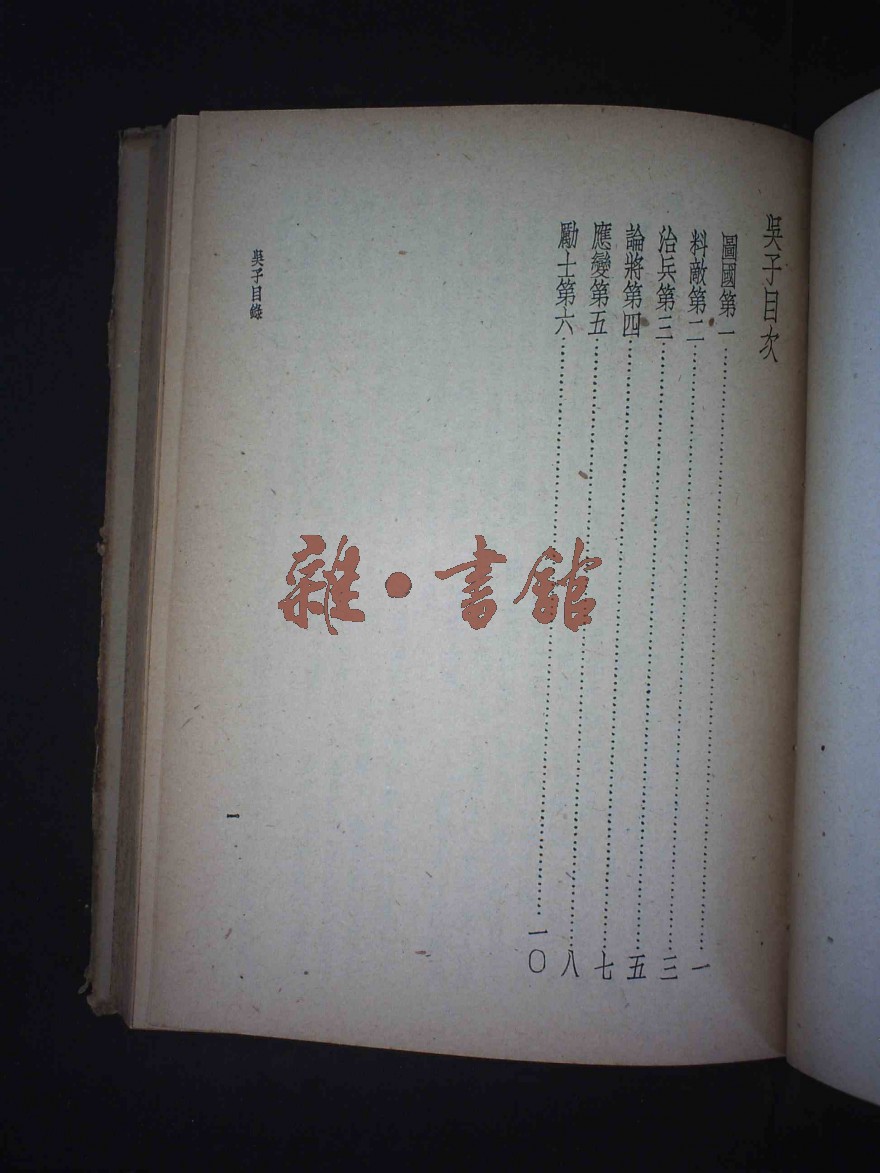 吳子目次
圖國第一…………一
料敵第二…………三
治兵第三…………五
論將第四…………七
應變第五…………八
勵士第六…………一〇
吳子目錄
一
雜·書館